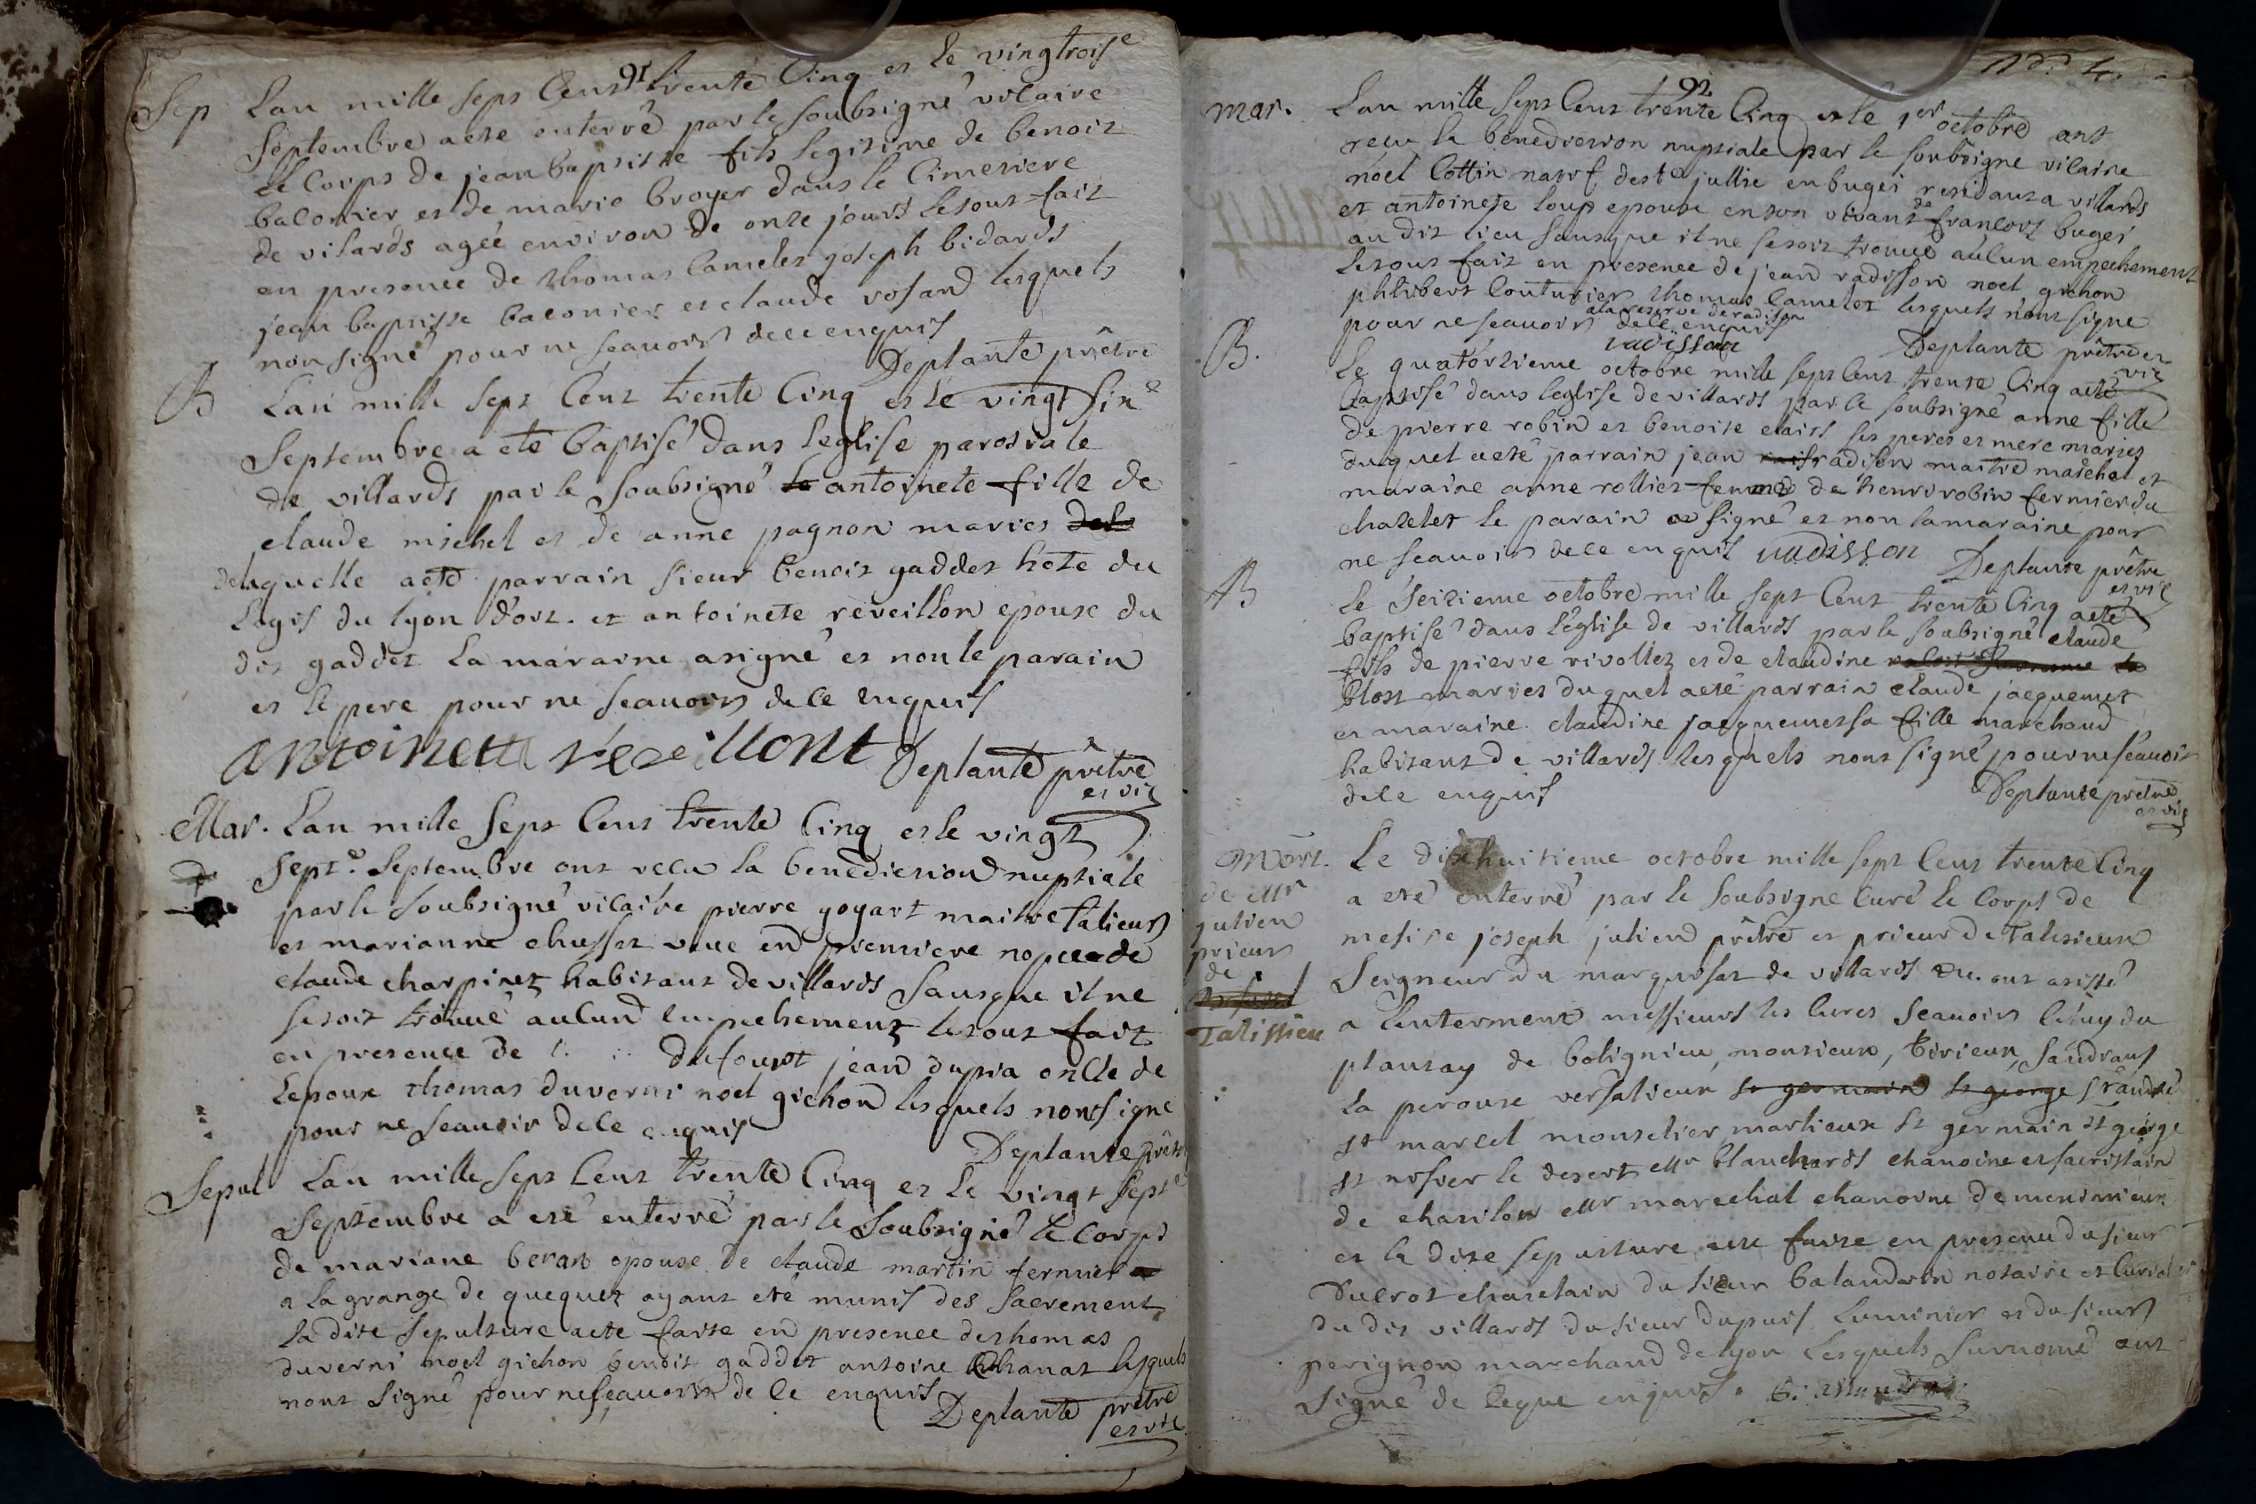 91
Sep Lan mille sept Cens trente Cinq et le vingtrois.e
Septembre a ete enterré par le soubsigné vicaire
le Corps de jean baptiste fils legitime de benoit
baconier et de marie broyer dans le Cimetiere
de vilards agée environ de onze jours le tout fait
en presence de thomas Camelet joseph bidards
jean baptiste baconier et claude rosand lesquels
non signé pour ne scauoir de ce enquis
Deplante prêtre
B Lan mille sept Cent trente Cinq et le vingt sin.e
Septembre a eté baptisé dans leglise paroisiale
de villards par le soubsigné antoinete fille de
claude michel et de anne pagnon maries
de laquelle a eté parrain sieur benoit gaddet hote du
Logis du lyon d'ort. et antoinete reveillon epouse du
dit gaddet La maraine a signé et non le parain
et le pere pour ne scauoir de ce enquis
antoinette reveillont Deplante prêtre
et vic
Mar. Lan mille sept Cent trente Cinq et le vingt
sept.e Septembre ont recu la benediction nuptiale
par le soubsigné vicaire pierre goyart maitre talieur
et marianne chusset veue en premiere nopce de
claude charpinet habitant de villards Sansque il ne
se soit trouué aucun empechement le tout fait
en presence de dufourt jean dupra oncle de
Lepoux thomas duverni noel gichon lesquels nont signe
pour ne scauoir de ce enquis
Deplante prêtre
Sepul Lan mille sept Cent trente Cinq et le vingt sept.e
Septembre a eté enterré par le Soubsigné le Corps
de mariane beras epouse de claude martin fermier
a la grange de quequet ayant eté munis des Sacrement
la dite sepulture a ete faite en presence de thomas
duverni noel gichon benoit gaddet antoine chanat lesquels
nont signé pour ne scauoir de ce enquis
Deplante prêtre
et vic
92
mar. Lan mille sept Cent trente Cinq et le 1er octobre ont
recu la benediction nuptiale par le soubsigne vicaire
noel Cottin natif de ste jullie en bugei residant a villards
et antoinete loup epouse en son vivant de francois bugei
au dit lieu sansque il ne se soit trouué aucun empechement
le tout fait en presence de jean radisson noel gichon
philibert Couturier thomas Camelet lesquels nont signe
a la reserve de radison
pour ne scauoir de ce enquis
radisson
Deplante prêtre et
vic
B. Le quatorzieme octobre mille sept Cent trente Cinq a eté
baptisé dans leglise de villards par le soubsigné anne fille
de pierre robin et benoite clais ses peres et mere maries
duquel a eté parrain jean radison maitre marechal et
maraine anne rollier femme de henri robin fermier du
chatelet le parain a signé et non la maraine pour
ne scauoir de ce enquis radisson Deplante prêtre
et vic
B Le seizieme octobre mille sept Cent trente Cinq a eté
baptisé dans l'église de villards par le soubsigné claude
fils de pierre rivollet et de claudine
blost maries duquel a eté parrain claude jacquemet
et maraine claudine jacquemet sa fille marchand
habitant de villards lesquels nont signé pour ne scauoir
de ce enquis
Deplante prêtre
et vic
Mort.
de Mr
julien
prieur
de
Talissieu
Le dixhuitieme octobre mille sept Cent trente Cinq
a eté enterré par le soubsigne Curé le Corps de
mesire joseph julien prêtre et prieur de Talisieux
Seigneur du marquisat de villards &c. ont asisté
a lenterment messieurs les Cures Scauoir Celuy du
plantay de bolignieu, monsieux, birieux, sandrans
la perouse versalieux st germain st george st andré
st marcel monselier marlieux st germain st george
st nisier le desert Mr blanchards chanoine et sacristain
de chatilon Mr marechal chanoine de meximieux
et la dite sepulture a ete faite en presence du sieur
Ducrot chatelain du sieur balandrin notaire et Curial
du dit villards du sieur dupuis Luminier et du sieur
perignon marchand de lyon Lesquels surnomé ont
signé de ceque enquis.